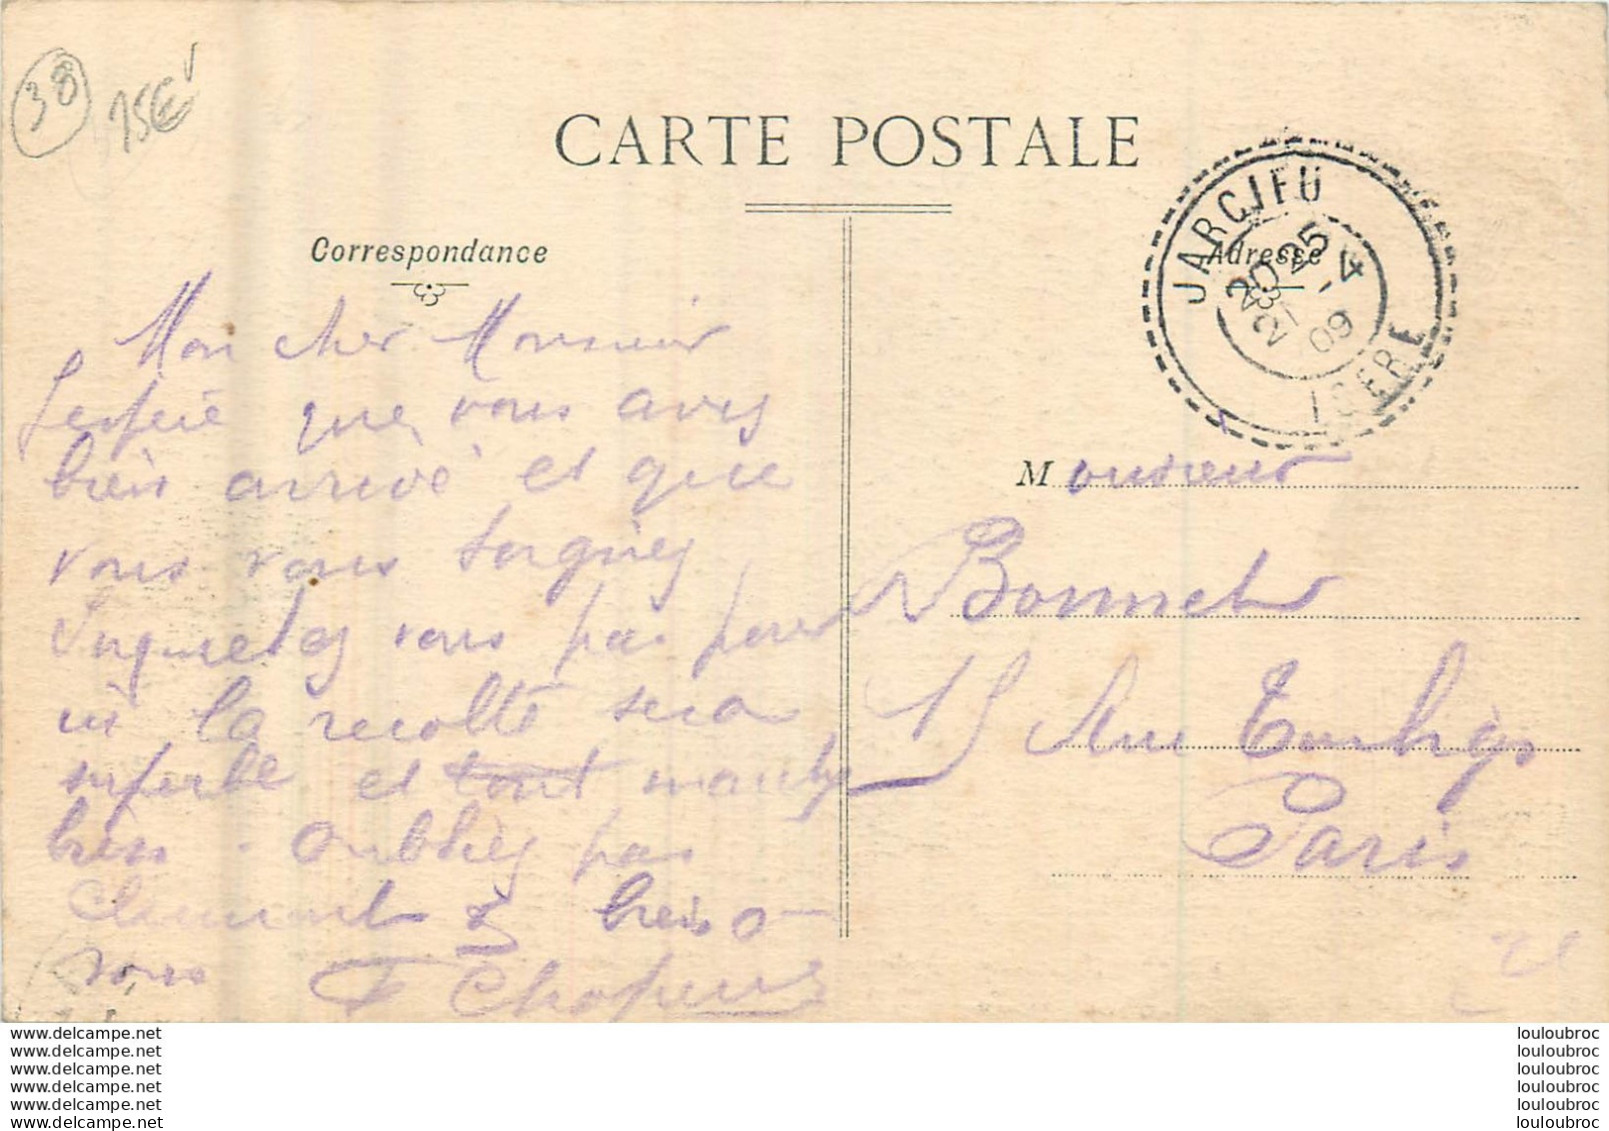 38
15€
CARTE POSTALE
Correspondance
Adresse
JARCIEU
20 25
21 -4
09
ISERE
Mon cher Monsieur
Jespère que vous avez
bien arrivé et que
vous vous soignez
Inquietez vous pas pour
ici la recolte sera
superbe et tout marche
bien . Oubliez pas
Clement & bien a
vous
Monsieur
Bonnet
15 Rue Turbigo
Paris
www.delcampe.net
www.delcampe.net
www.delcampe.net
www.delcampe.net
www.delcampe.net
www.delcampe.net
louloubroc
louloubroc
louloubroc
louloubroc
louloubroc
louloubroc